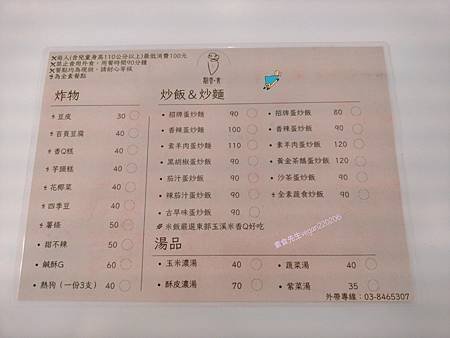 ✕兩人(含兒童身高110公分以上)最低消費100元
✕禁止食用外食，用餐時間90分鐘
✕餐點均為現做，請耐心等候
為全素餐點
炸物
豆皮 30
百頁豆腐 40
香Q糕 40
芋頭糕 40
花椰菜 40
四季豆 40
薯條 50
甜不辣 50
鹹酥G 60
熱狗（一份3支） 40
炒飯＆炒麵
招牌蛋炒麵 90
香辣蛋炒麵 100
素羊肉蛋炒麵 110
黑胡椒蛋炒飯 90
茄汁蛋炒飯 90
辣茄汁蛋炒飯 90
古早味蛋炒飯 90
招牌蛋炒飯 80
香辣蛋炒飯 90
素羊肉蛋炒飯 120
黃金茶鵝蛋炒飯 120
沙茶蛋炒飯 90
全素蔬食炒飯 90
#米飯嚴選東部玉溪米香Q好吃
素食先生vegan220206
湯品
玉米濃湯 40
酥皮濃湯 70
蔬菜湯 40
紫菜湯 35
外帶專線：03-8465307